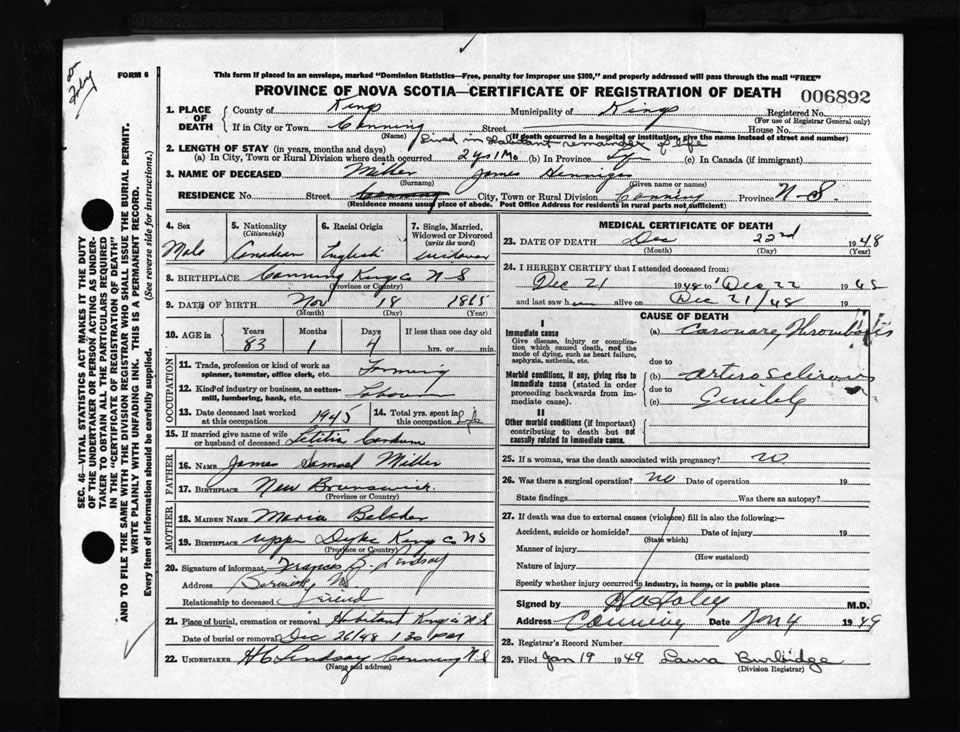 Dr Foley
FORM 6
This form if placed in an envelope, marked "Dominion Statistics—Free, penalty for improper use $300," and properly addressed will pass through the mail "FREE"
PROVINCE OF NOVA SCOTIA—CERTIFICATE OF REGISTRATION OF DEATH
006892
SEC. 46—VITAL STATISTICS ACT MAKES IT THE DUTY
OF THE UNDERTAKER OR PERSON ACTING AS UNDER-
TAKER TO OBTAIN ALL THE PARTICULARS REQUIRED
IN THE "CERTIFICATE OF REGISTRATION OF DEATH"
AND TO FILE THE SAME WITH THE DIVISION REGISTRAR WHO SHALL ISSUE THE BURIAL PERMIT.
WRITE PLAINLY WITH UNFADING INK. THIS IS A PERMANENT RECORD.
Every item of information should be carefully supplied. (See reverse side for instructions.)
1. PLACE OF DEATH County of Kings Municipality of Kings Registered No.
(For use of Registrar General only)
If in City or Town Canning Street House No.
(Name) (If death occurred in a hospital or institution, give the name instead of street and number)
lived in Habitant remainder of life
2. LENGTH OF STAY (in years, months and days)
(a) In City, Town or Rural Division where death occurred 2 yrs 1 Mo (b) In Province Life (c) In Canada (if immigrant)
3. NAME OF DECEASED Miller James Hennigar
(Surname) (Given name or names)
RESIDENCE No. Street Canning City, Town or Rural Division Canning Province N-S.
(Residence means usual place of abode. Post Office Address for residents in rural parts not sufficient)
4. Sex Male
5. Nationality (Citizenship) Canadian
6. Racial Origin English
7. Single, Married, Widowed or Divorced (write the word) widower
8. BIRTHPLACE Canning Kings Co N S
(Province or Country)
9. DATE OF BIRTH Nov 18 1865
(Month) (Day) (Year)
10. AGE in Years Months Days If less than one day old
83 1 4 hrs. or min.
OCCUPATION
11. Trade, profession or kind of work as spinner, teamster, office clerk, etc. Farming
12. Kind of industry or business, as cotton-mill, lumbering, bank, etc. Labourer
13. Date deceased last worked at this occupation 1945
14. Total yrs. spent in this occupation Life
15. If married give name of wife or husband of deceased Letitia
FATHER
16. NAME James Samuel Miller
17. BIRTHPLACE New Brunswick
(Province or Country)
MOTHER
18. MAIDEN NAME Maria Belcher
19. BIRTHPLACE upper Dyke Kings Co NS
(Province or Country)
20. Signature of informant Frances B. Lindsay
Address Berwick NS
Relationship to deceased friend
21. Place of burial, cremation or removal Habitant Kings Co N S
Date of burial or removal Dec 26/48 1 30 PM
22. UNDERTAKER H C Lindsay Canning N S
(Name and address)
MEDICAL CERTIFICATE OF DEATH
23. DATE OF DEATH Dec 22nd 1948
(Month) (Day) (Year)
24. I HEREBY CERTIFY that I attended deceased from:
Dec 21 1948 to Dec 22 1948
and last saw him alive on Dec 21/48 19
CAUSE OF DEATH
I
Immediate cause
Give disease, injury or complication which caused death, not the mode of dying, such as heart failure, asphyxia, asthenia, etc.
(a) Coronary Thrombosis
due to
Morbid conditions, if any, giving rise to immediate cause (stated in order proceeding backwards from immediate cause).
(b) arterosclerosis
due to
(c) Senility
II
Other morbid conditions (if important) contributing to death but not causally related to immediate cause.
25. If a woman, was the death associated with pregnancy? no
26. Was there a surgical operation? No Date of operation 19
State findings Was there an autopsy?
27. If death was due to external causes (violence) fill in also the following:—
Accident, suicide or homicide? Date of injury 19
(State which)
Manner of injury
(How sustained)
Nature of injury
Specify whether injury occurred in industry, in home, or in public place
Signed by Foley M.D.
Address Canning Date Jan 4 1949
28. Registrar's Record Number
29. Filed Jan 19 1949 Laura Burbidge
(Division Registrar)